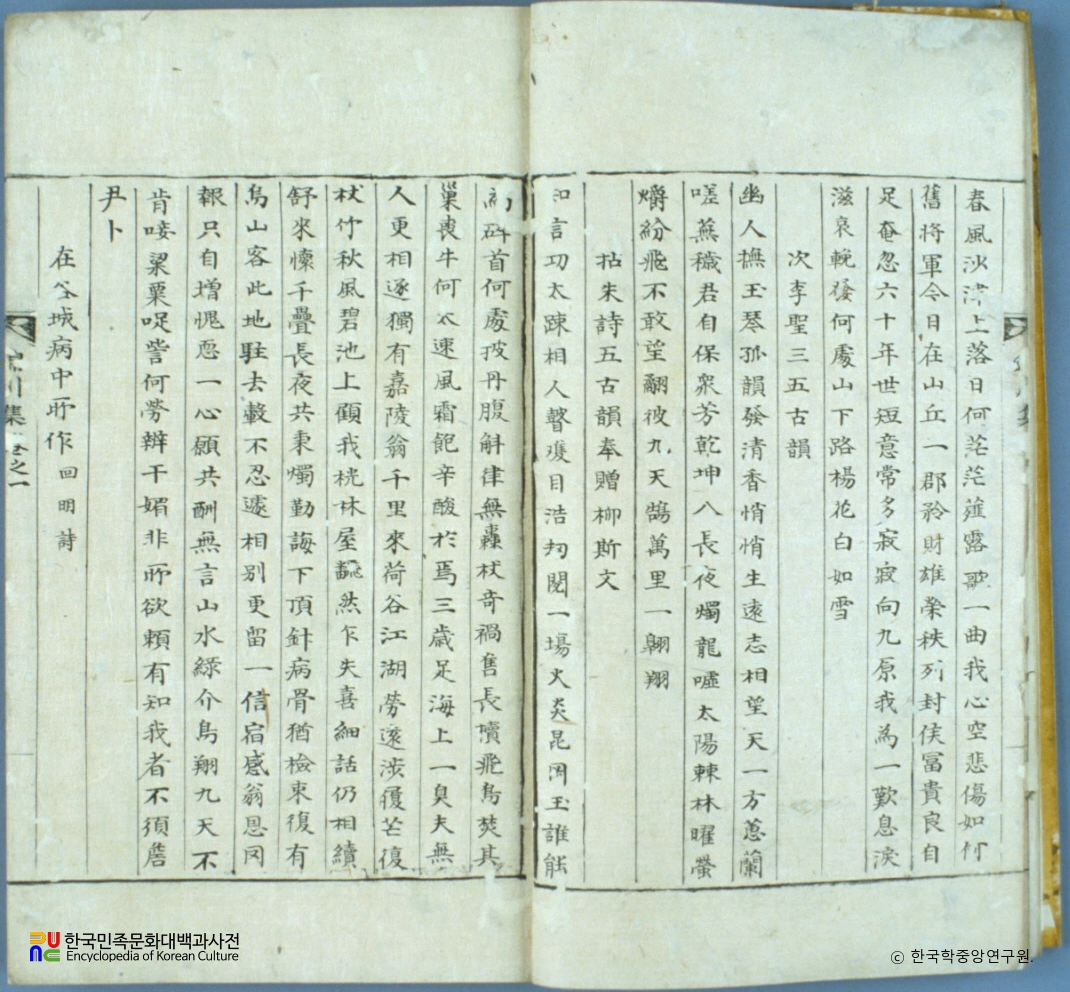 春風沙津上落日何茫茫薤露歌一曲我心空悲傷如何
舊將軍今日在山丘一郡矜財雄榮秩列封侯富貴良自
足奄忽六十年世短意常多寂寂向九原我為一歎息淚
滋哀輓發何處山下路楊花白如雪
次李聖三五古韻
幽人撫玉琴孤韻發清香悄悄生遠志相望天一方蕙蘭
嗟蕪穢君自保衆芳乾坤八長夜燭龍嘘太陽棘林曜螢
爝紛飛不敢望翩彼九天鵠萬里一翱翔
拈朱詩五古韻奉贈柳斯文
知言功太踈相人瞽瘦目浩劫閱一場火炎昆罔玉誰能
碎首何處披丹腹斛律無轟杖奇禍售長牘飛鳥焚其
巢喪牛何太速風霜飽辛酸於焉三歲足海上一臭夫無
人更相逐獨有嘉陵翁千里來荷谷江湖勞遠涉履芒復
杖竹秋風碧池上顧我桄林屋飜然乍失喜細話仍相續
舒來懷千疊長夜共秉燭勤誨下頂針病骨猶檢束復有
烏山客此地駐去轂不忍遽相別更留一信宿感翁恩罔
報只自增愧恧一心願共酬無言山水綠介鳥翔九天不
肯唼粱粟呢訾何勞辨干媚非所欲賴有知我者不須詹
尹卜
在谷城病中所作回明詩
川集卷之一
한국민족문화대백과사전
Encyclopedia of Korean Culture
ⓒ 한국학중앙연구원.